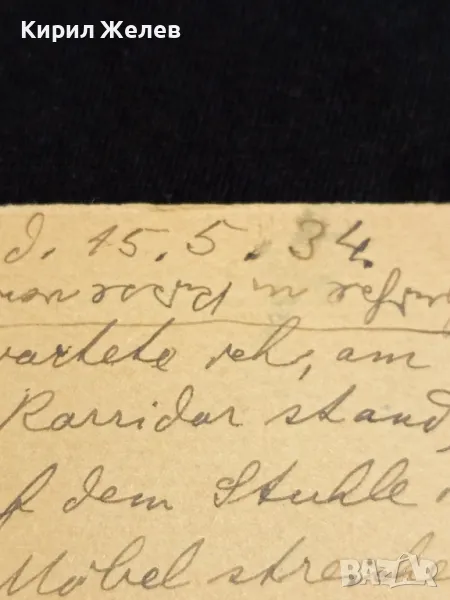 Кирил Желев
d. 15.5.34.
wartete ich, am
Korridor stand,
f dem Stuhle
Möbel streiche
BAZAR